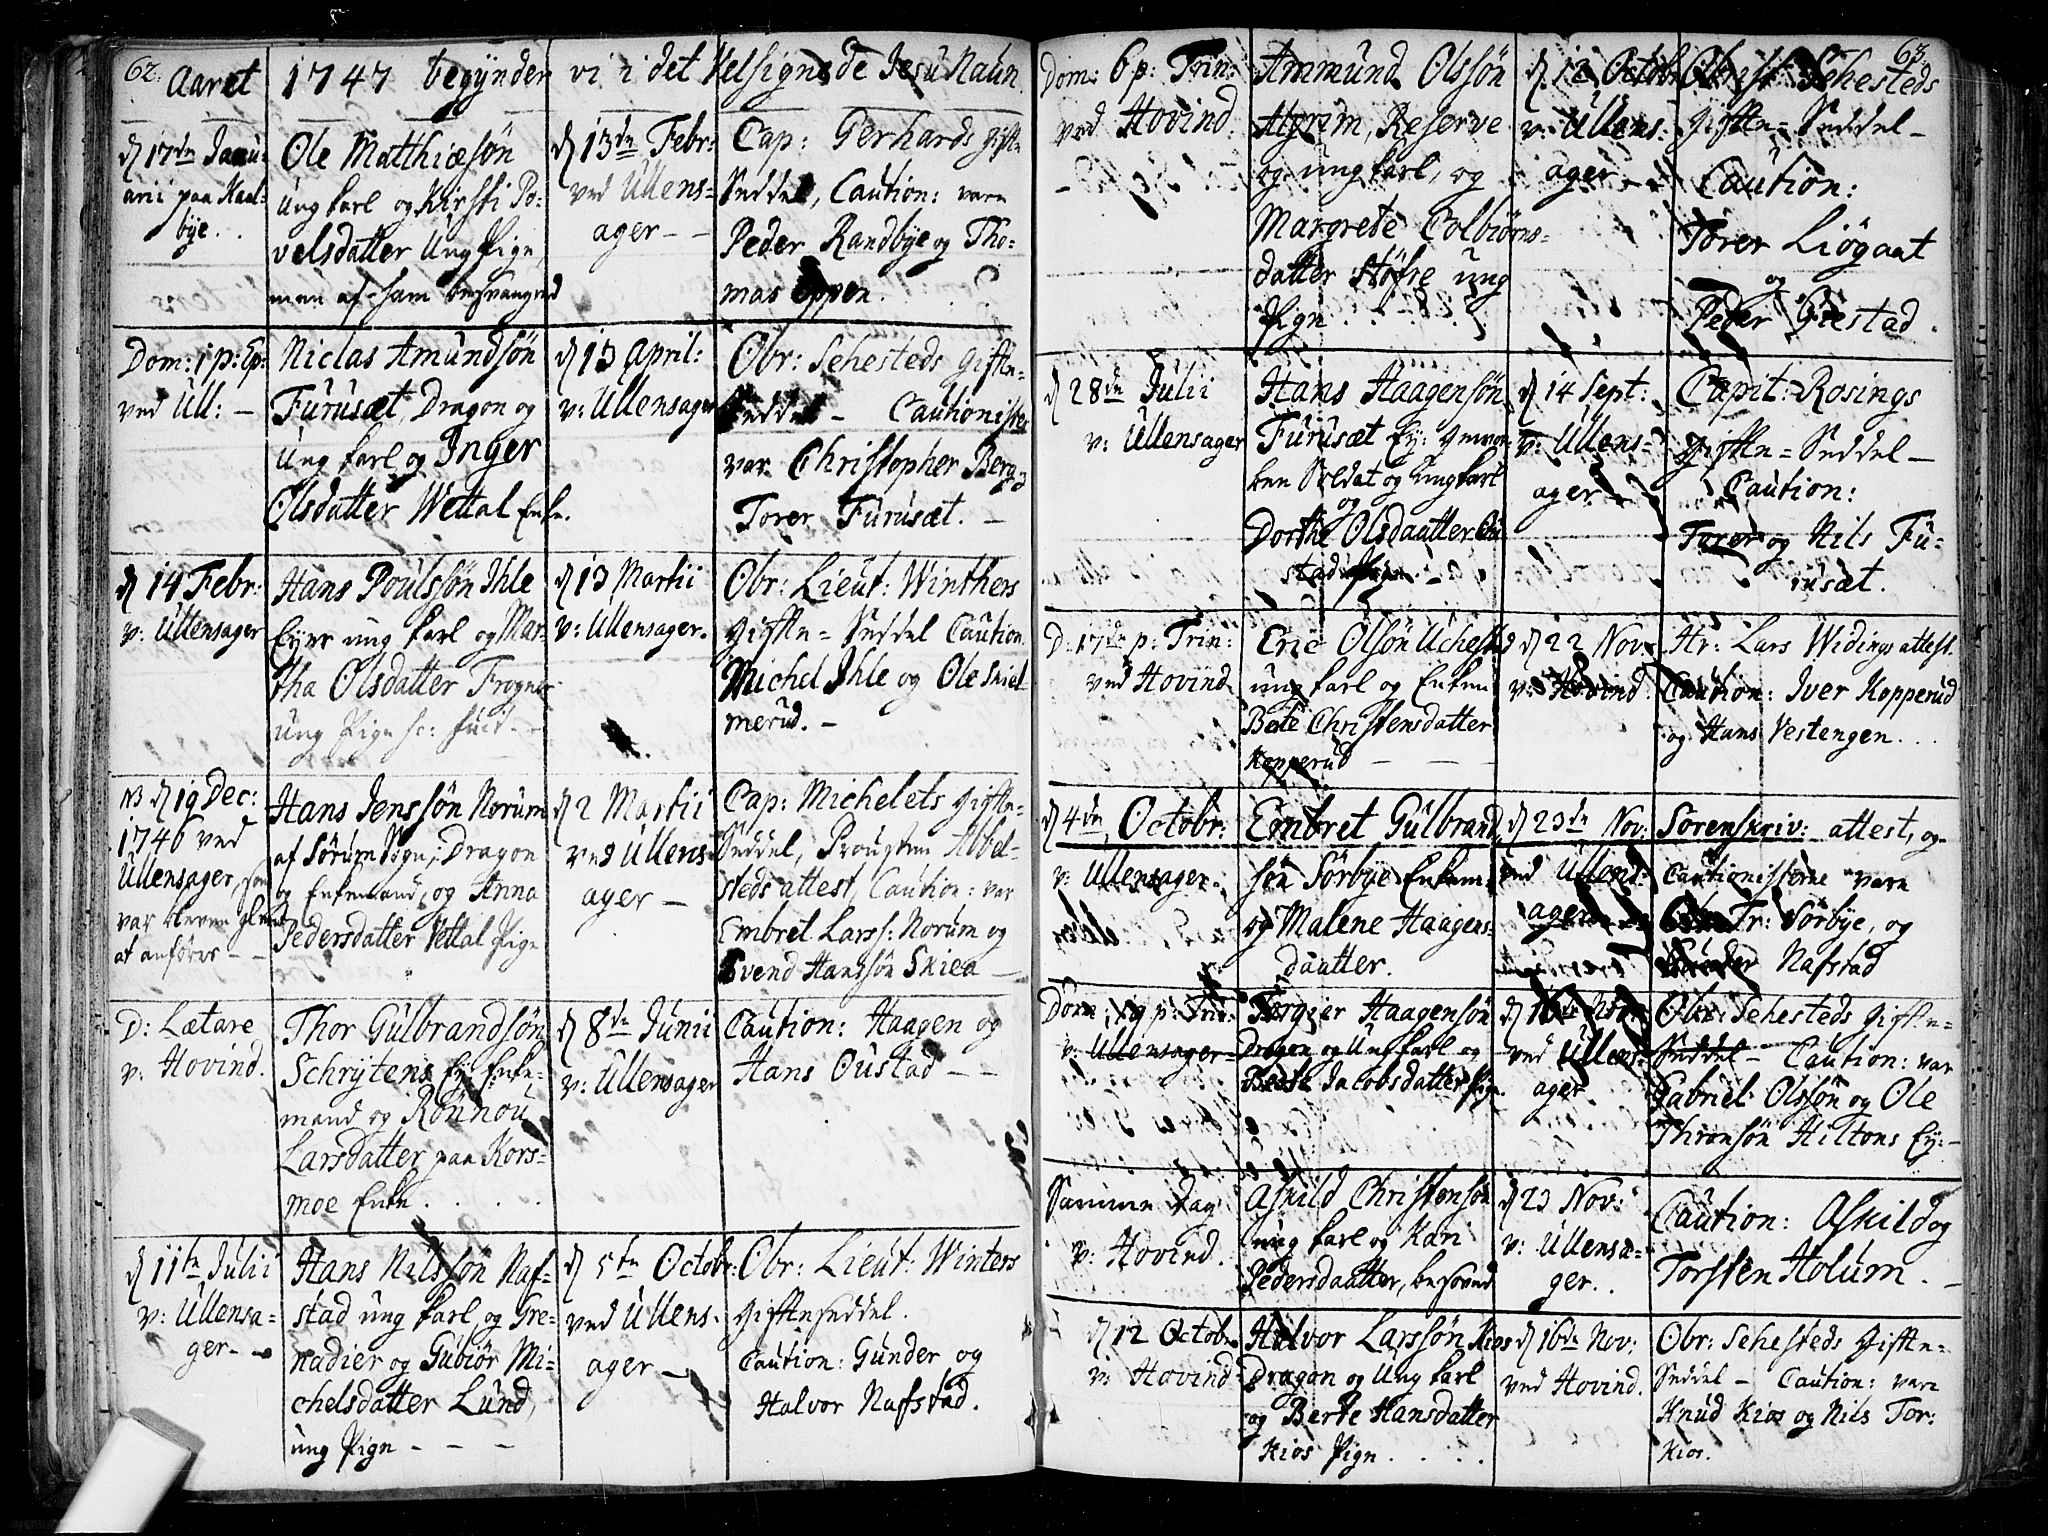 62.
Aaret 1747 begynder vi i det Velsignede Jesu Naun
d 17de Janu-
arii paa Kaal-
bye.
Ole Matthiæsøn
Ung karl og Kirsti Po-
velsdatter Ung Pige,
men af ham besvangred
d 13de Febr:
ved Ullens-
ager - -
Cap: Gerhards gifte
Seddel, Caution: vare
Peder Randbye og Tho-
mas Eppen.
Dom: 1 p: Ep:
ved Ull: -
Niclas Amundsøn
Furusæt, Dragon og
Ung karl og Inger
Olsdatter Wettal Enke.
d 13 April:
v: Ullensager
Obr: Sehesteds gifte-
Seddel - Cautionister
var Christopher Berg
Torer Furusæt. -
d 14 Febr:
v: Ullensager
Hans Poulssøn Ihle
Eyer ung karl og Mar-
tha Olsdatter Frogner
ung Pige sc: fuit. -
d 13 Martii
v: Ullensager.
Obr: Lieut: Winthers
gifte= Seddel Caution
Michel Ihle og Ole Skiel-
merud. -
NB d 19 Dec:
1746 ved
Ullensager, som
var bleven glemt
at anføres - -
Hans Jenssøn Norum
af Sørum Sogn, Dragon
og Enkemand, og Anna
Pedersdatter Vettal Pige
d 2 Martii
ved Ullens-
ager -
Cap: Michelets gifte-
Seddel, Prousten Abbel-
steds attest, Caution: var
Embret Larss: Norum og
Svend Hanssøn Skiea -
D: Lætare
v: Hovind.
Thor Gulbrandsøn
Schrytens Ey: Enke-
mand og Rønnou
Larsdatter paa Kors-
moe Enke. . . .
d 8de Junii
v: Ullensager
Caution: Haagen og
Hans Oustad - -
d 11te Julii
v: Ullensa-
ger- -
Hans Nilssøn Naf-
stad ung karl, og Gre-
nadier og Gubiør Mi-
chelsdatter Lund,
ung Pige - - -
d 5te Octobr:
ved Ullens-
ager -
Obr: Lieut: Winters
gifteseddel.
Caution: Gunder og
Halvor Nafstad.
63.
Dom: 6 p: Trin:
ved Hovind.
Ammund Olssøn
Algrim, Reserve
og ung karl, og
Margrete Colbiørns-
datter Støfre ung
Pige . . . .
d 12 Octobr
v: Ullens-
ager - -
Obrist Sehesteds
gifte= Seddel -
Caution:
Torer Liøgaat
og
Peder Giestad.
d 28de Julii
v: Ullensager
Hans Haagensøn
Furusæt Ey: gevor-
ben Soldat og Ung karl
og
Dorthe Olsdaatter
stad Pige. -
d 14 Sept:
v: Ullens-
ager -
Capit: Rosings
gifte= Seddel -
Caution:
Torer og Nils Fu-
rusæt.
D: 17de p: Trin:
ved Hovind
Eric Olsøn Uchestad
ung karl og Enken
Berte Christensdatter
Kopperud - -
d 22 Nov:
v: Hovind.
Hr: Lars Widings attest.
Caution: Iver Kopperud
og Hans Vestengen. . .
d 4de Octobr:
v: Ullensager.
Embret Gulbrand-
søn Sørbye Enkem:
og Malene Haagens-
daatter.
d 23de Nov:
ved Ullens-
ager
Sorenskriv: attest, og
Cautionisterne vare
Tr: Sørbye, og
Nafstad
Dom: 19 p: Trin:
v: Ullensager-
Torgier Haagensøn
Dragon og Ung karl og
Berte Jacobsdatter Pige.
d 16de
ved Ullens-
ager.
Obr: Sehesteds gifte-
Seddel - Caution: var
Gabriel Olssøn og Ole
Thronsøn Hiltons Ey: -
Samme Dag
v: Hovind.
Askild Christensøn
ung karl og Kari
Pedersdaatter, besoved
d 23 Nov:
v: Ullensa-
ger. .
Caution: Askild og
Torsten Holum. -
d 12 Octobr
v: Hovind
Halvor Larssøn Kios
Dragon og Ung karl
og Berte Hansdatter
Kios Pige. . . .
d 16de Nov:
ved Hovind.
Obr: Sehesteds gifte-
Seddel - Caution: vare
Knud Kios og Nils Tor:
Kios.